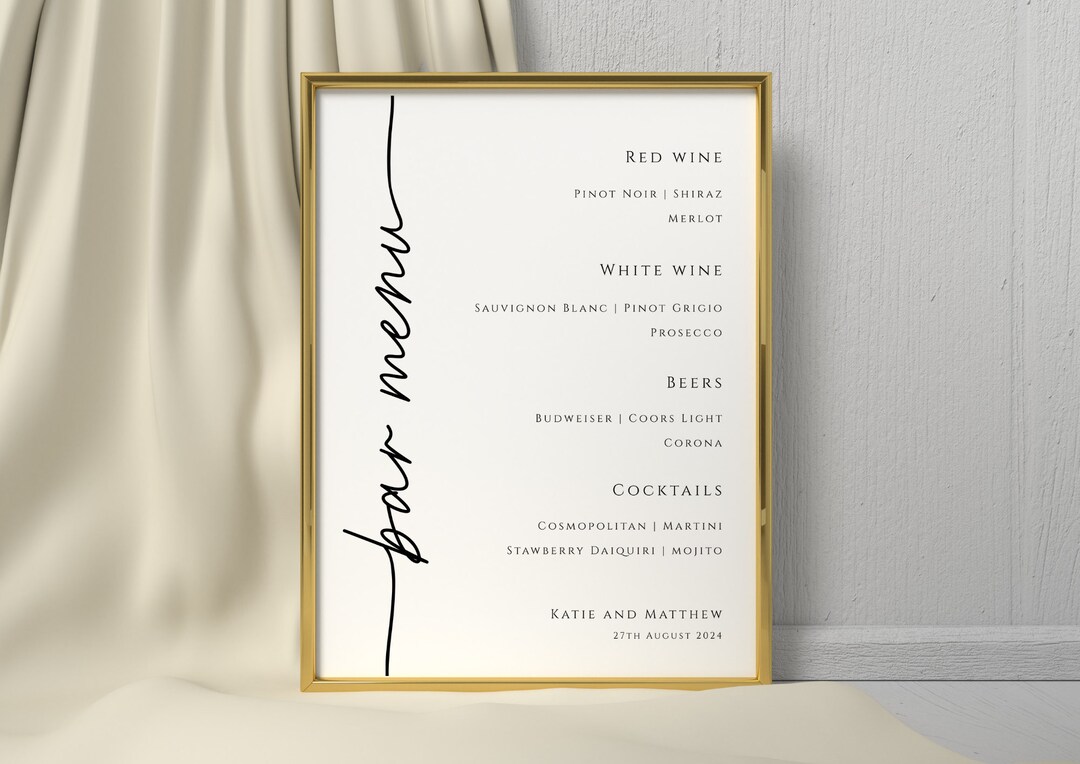 bar menu
Red wine
Pinot Noir | Shiraz
Merlot
White wine
Sauvignon Blanc | Pinot Grigio
Prosecco
Beers
Budweiser | Coors Light
Corona
Cocktails
Cosmopolitan | Martini
Stawberry Daiquiri | mojito
Katie and Matthew
27th August 2024